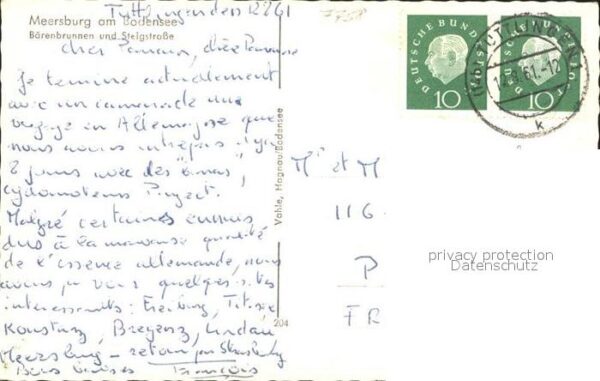 Meersburg am Bodensee
Bärenbrunnen und Steigstraße
Tuttlingen
cher Parrain, chère Marraine
Je termine actuellement
avec un camarade un
voyage en Allemagne que
nous avons entrepris il y a
8 jours avec des
cyclomoteurs Peugeot.
Malgré certaines ennuis
dus à la mauvaise qualité
de l'essence allemande, nous
avons pu voir quelques sites
interessants: Freiburg, Titisee
Konstanz, Bregenz, Lindau
Meersburg - retour par Strasbourg
Bons baisers François
Vahle, Hagnau/Bodensee
204
DEUTSCHE BUNDESPOST
10
DEUTSCHE BUNDESPOST
10
TUTTLINGEN
61.-12
k
Mr et M
116
P
FR
privacy protection
Datenschutz